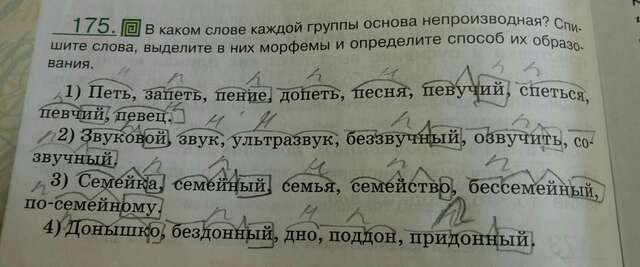 175. В каком слове каждой группы основа непроизводная? Спи-
шите слова, выделите в них морфемы и определите способ их образо-
вания.
1) Петь, запеть, пение, допеть, песня, певучий, спеться,
певчий, певец.
2) Звуковой, звук, ультразвук, беззвучный, озвучить, со-
звучный.
3) Семейка, семейный, семья, семейство, бессемейный,
по-семейному.
4) Донышко, бездонный, дно, поддон, придонный.